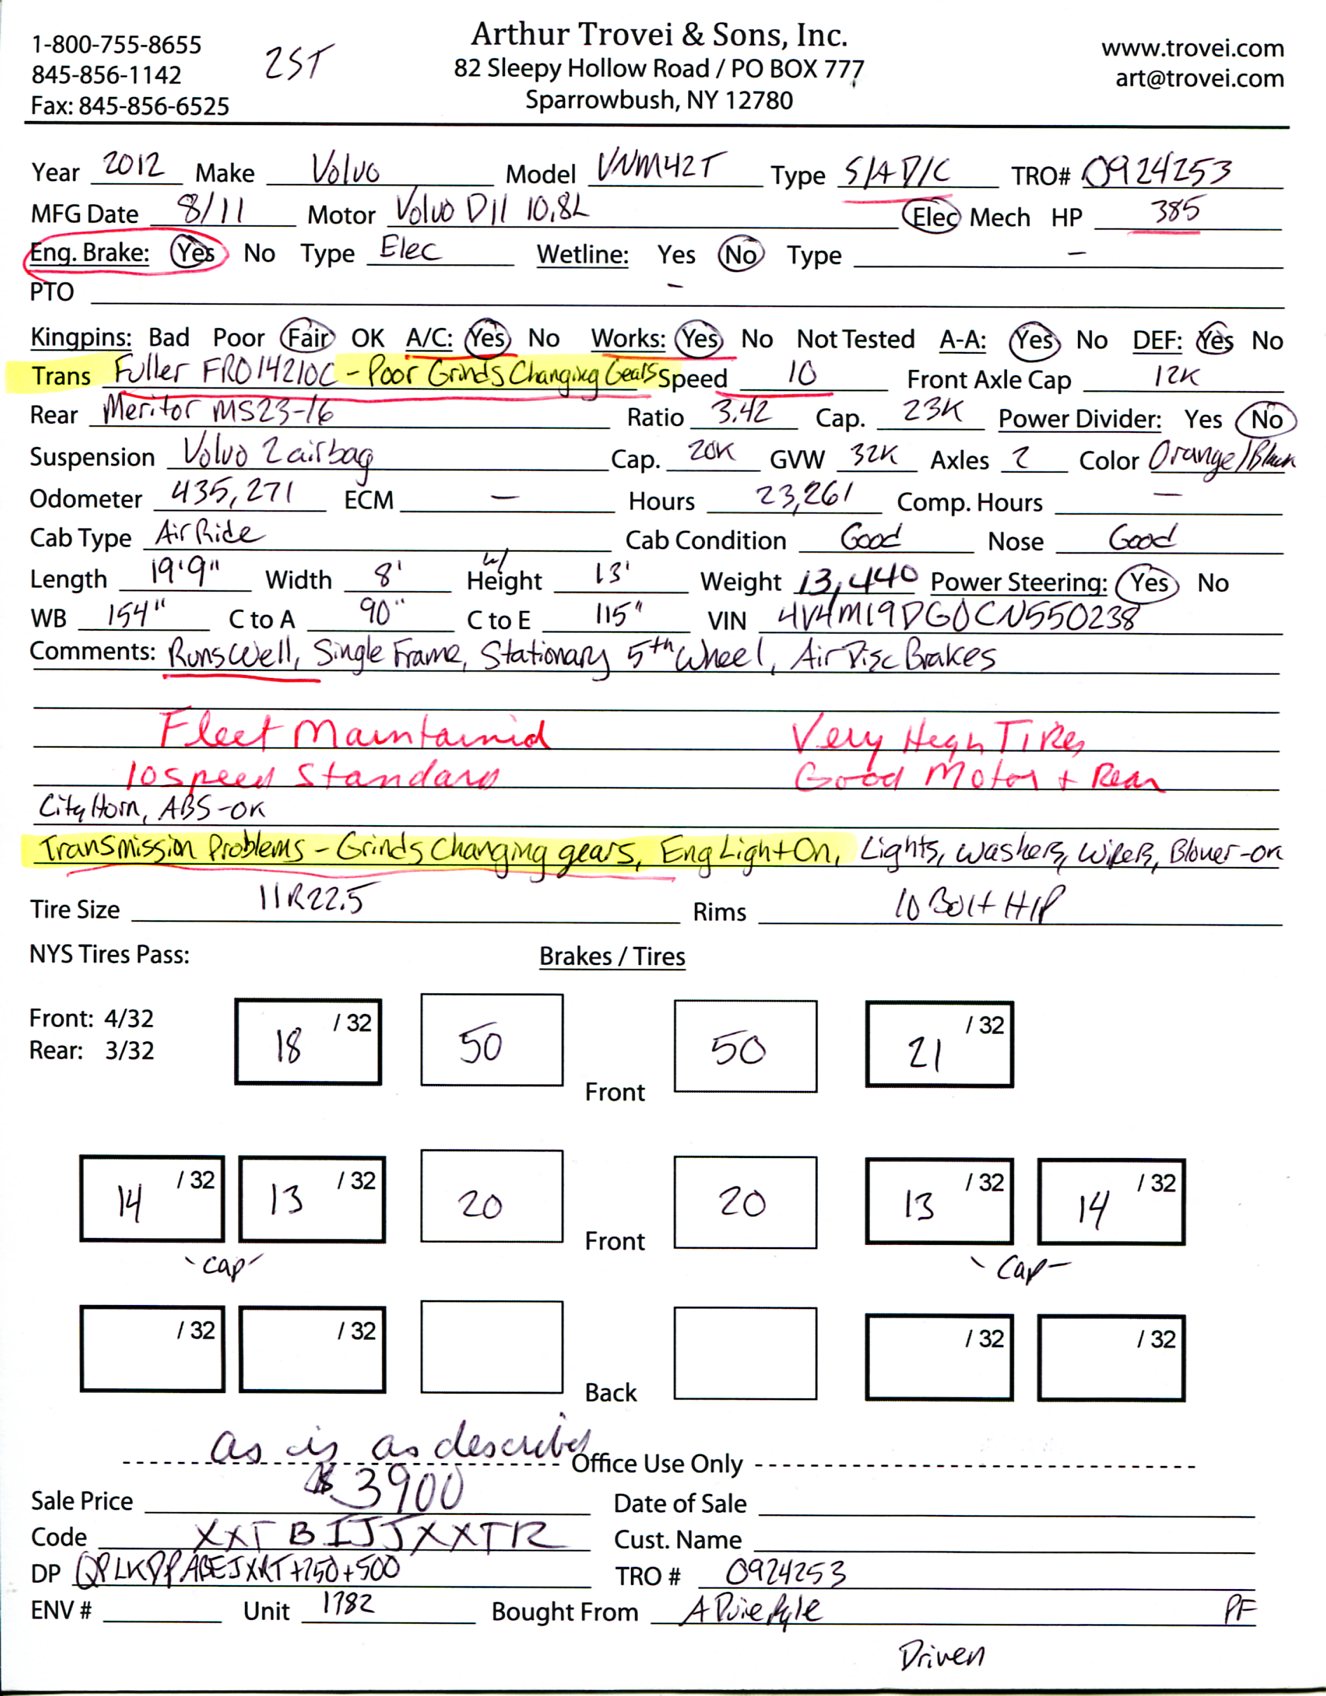 Arthur Trovei & Sons, Inc.
1-800-755-8655 2ST 82 Sleepy Hollow Road / PO BOX 777 www.trovei.com
845-856-1142 art@trovei.com
Fax: 845-856-6525 Sparrowbush, NY 12780
Year 2012 Make Volvo Model VNM42T Type S/A D/C TRO# 0924253
MFG Date 8/11 Motor Volvo D11 10.8L Elec Mech HP 385
Eng. Brake: Yes No Type Elec Wetline: Yes No Type –
PTO –
Kingpins: Bad Poor Fair OK A/C: Yes No Works: Yes No Not Tested A-A: Yes No DEF: Yes No
Trans Fuller FRO14210C - Poor Grinds Changing Gears Speed 10 Front Axle Cap 12K
Rear Meritor MS23-16 Ratio 3.42 Cap. 23K Power Divider: Yes No
Suspension Volvo 2 airbag Cap. 20K GVW 32K Axles 2 Color Orange/Black
Odometer 435,271 ECM – Hours 23,261 Comp. Hours –
Cab Type Air Ride Cab Condition Good Nose Good
Length 19'9" Width 8' w/ Height 13' Weight 13,440 Power Steering: Yes No
WB 154" C to A 90" C to E 115" VIN 4V4M19DG0CN550238
Comments: Runs Well, Single Frame, Stationary 5th Wheel, Air Disc Brakes
Fleet Maintainid Very High Tires
10 speed Standard Good Motor + Rear
City Horn, ABS-OK
Transmission Problems - Grinds Changing gears, Eng Light On, Lights, Washers, Wipers, Blower-OK
Tire Size 11R22.5 Rims 10 Bolt H/P
NYS Tires Pass: Brakes / Tires
Front: 4/32
Rear: 3/32
18 /32 50 Front 50 21 /32
14 /32 13 /32 20 Front 20 13 /32 14 /32
-Cap- -Cap-
/32 /32 Back /32 /32
as is as described
Office Use Only
Sale Price $3900 Date of Sale
Code XXTBIJJXXTR Cust. Name
DP TRO # 0924253
ENV # Unit 1782 Bought From PF
Driven